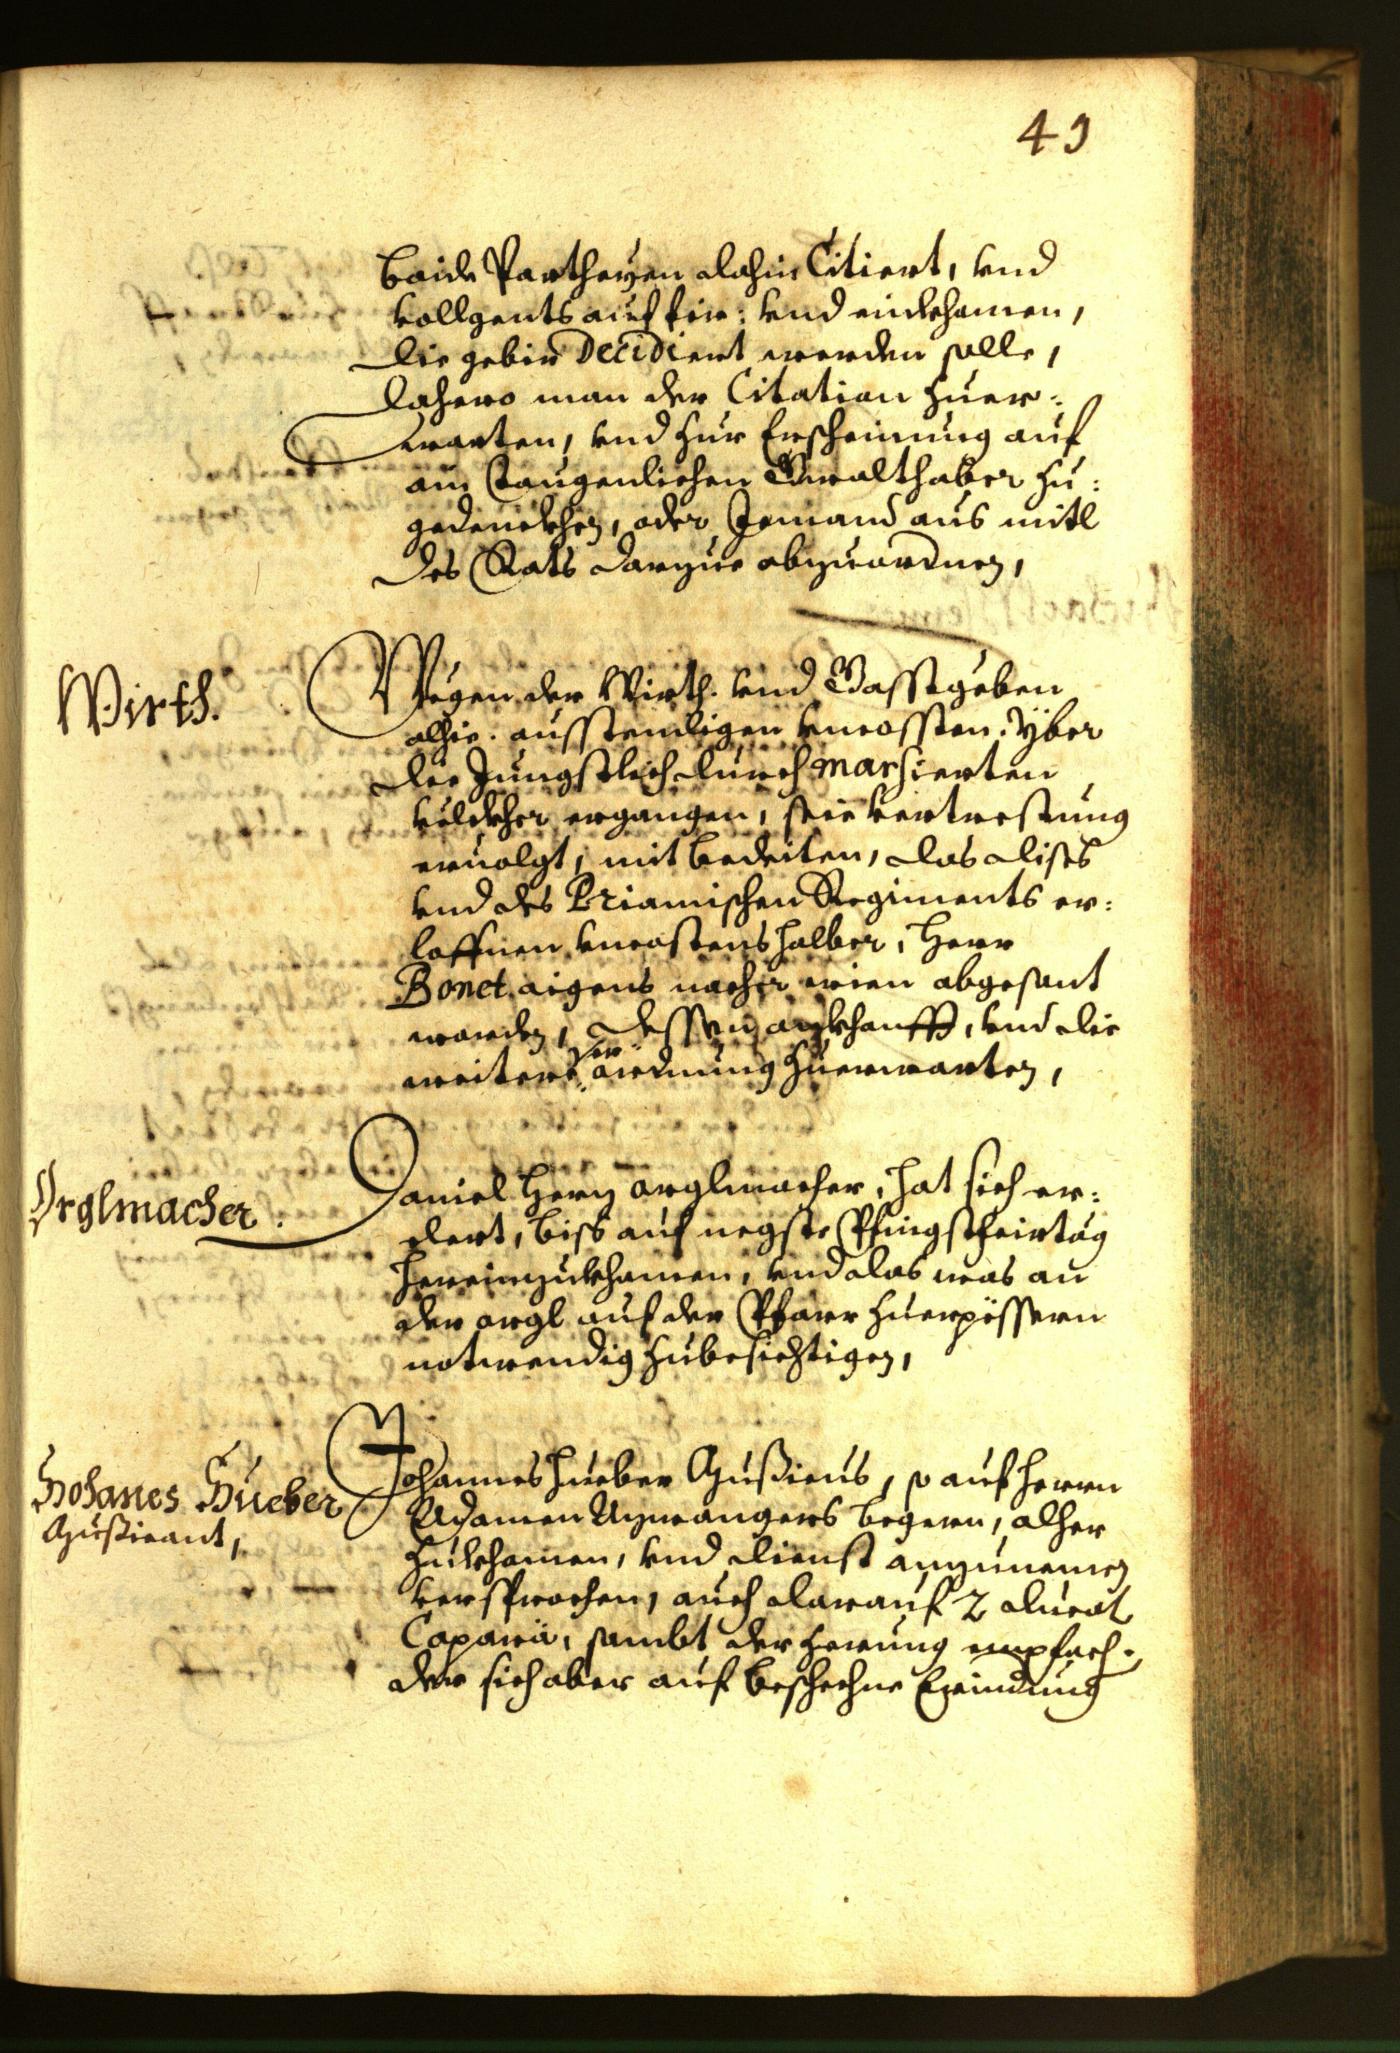 49
baide Partheyen dahin Citiert, vnd
vollgents auf fir: vnd einkhamen,
die gebir Decidiert werden solle,
dahero man der Citation zuer:
warten, vnd zur Erscheinung auf
ain taugenlichen Gwalthaber zu:
gedenckhen, oder Jemand aus mitl
des Rats darzue abzuordnen,
Wirth.
Wegen der Wirth. vnd Gasstgeben
alhie. ausstendigen vncossten. yber
die Jungstlich durch marsierten
völckher ergangen, seie vertrestung
ervolgt, mit bedeiten, das dises
vnd des Priamischen Regiments er:
loffnen vncostens halber, Herr
Bonet aigens nacher wien abgesant
worden, dessen ankhunfft, vnd die
weitere verordnung zuerwarten,
Orglmacher.
Daniel Herz orglmacher, hat sich er:
clert, biss auf negste Pfingstfeirtäg
hereinzukhamen, vnd das was an
der orgl auf der Pfarr zuerpössern
notwendig zubesichtigen,
Johanes Hueber
Musicant,
Johannes hueber Musicus, so auf herrn
Adamen begern, alher
zukhamen, vnd dienst anzunemen
versprochen, auch darauf 2 ducat
Caparä, sambt der zerung empfach.
der sich aber auf beschechne